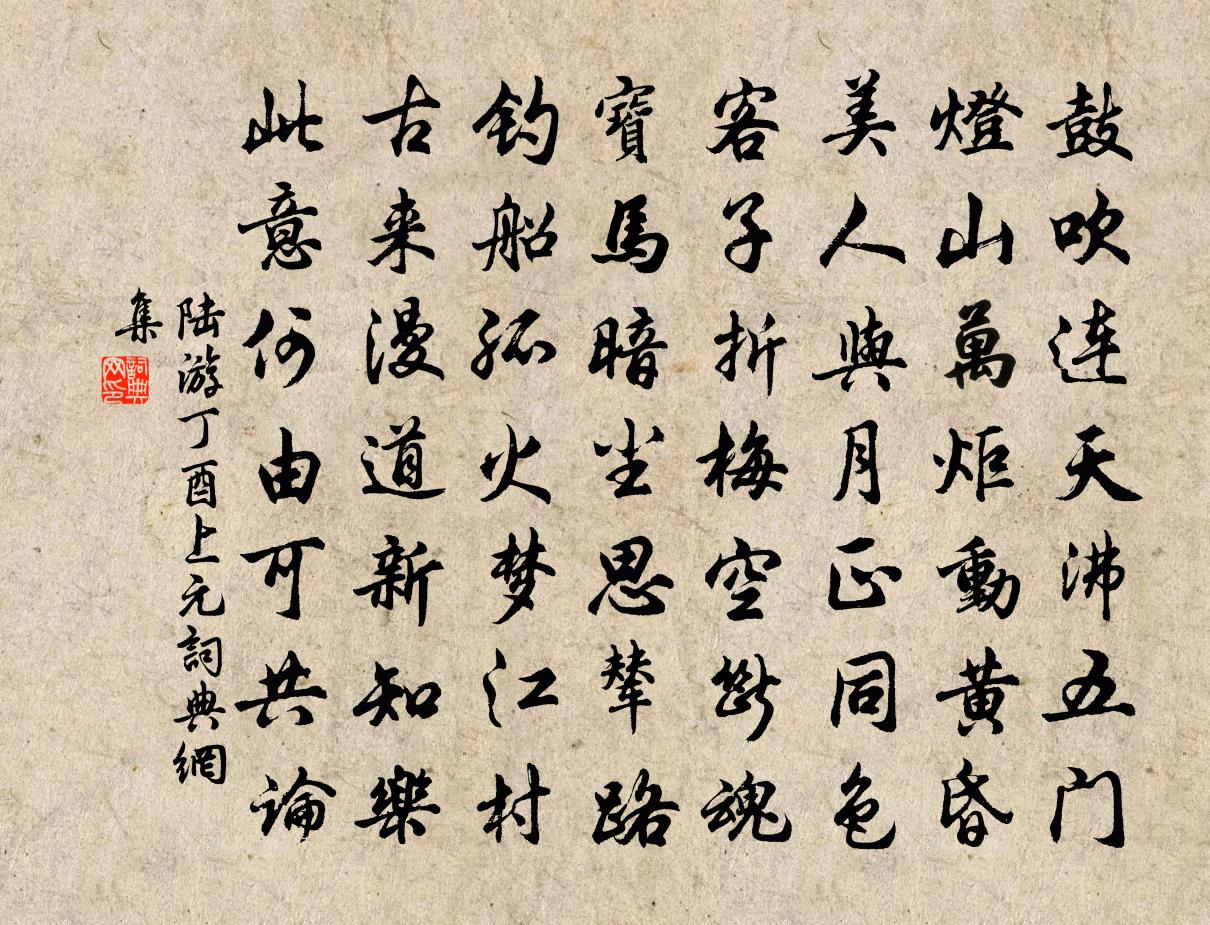 鼓吹连天沸五门
燈山萬炬動黃昏
美人與月正同色
客子折梅空斷魂
寶馬暗尘思輦路
釣船孤火梦江村
古来漫道新知樂
此意何由可共論
陆游丁酉上元詞典網
集
詞典网印